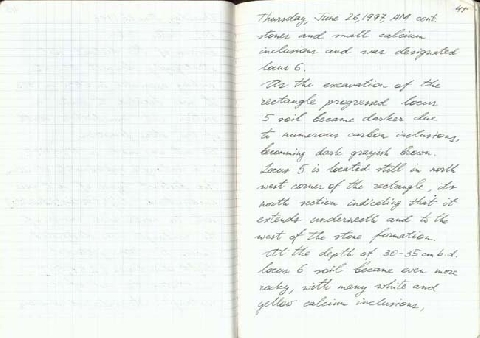 47
Thursday, June 26, 1997 AM cont.
stones and small calcium
inclusions and was designated
locus 6.
As the excavation of the
rectangle progressed locus
5 soil became darker due
to numerous carbon inclusions,
becoming dark grayish brown.
Locus 5 is located still in north
west corner of the rectangle, its
north section indicating that it
extends underneath and to the
west of the stone formation.
At the depth of 30-35 cm b.d.
locus 6 soil became even more
rocky, with many white and
yellow calcium inclusions,